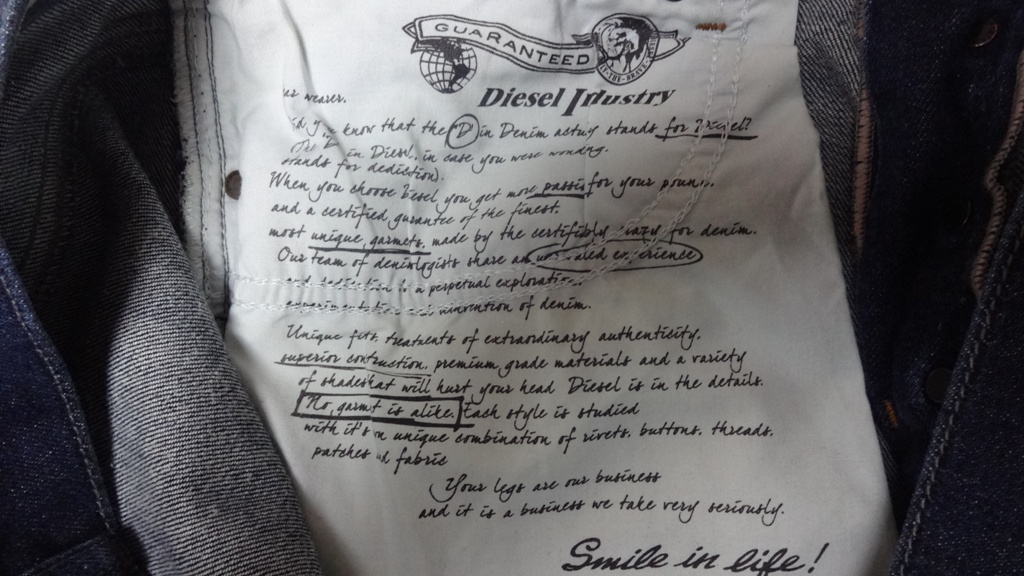 GUARANTEED
Diesel Industry
wearer.
know that the "D" in Denim actuy stands for Diesel?
in Diesel, in case you were wondng.
stands for dedication).
When you choose Diesel you get more passi for your poun
and a certified gurantee of the finest.
most unique garmets, made by the certifiably crazy for denim.
Our team of denimlogists share an experience
and dedication is a perpetual exploration
invention of denim.
Unique fits, treatments of extraordinary authenticity.
superior contruction. premium grade materials and a variety
of shadeshat will hurt your head Diesel is in the details.
No garmt is alike. Each style is studied
with it's n unique combination of rivets. buttons. threads.
patches d fabric
Your legs are our business
and it is a business we take very seriously.
Smile in life!